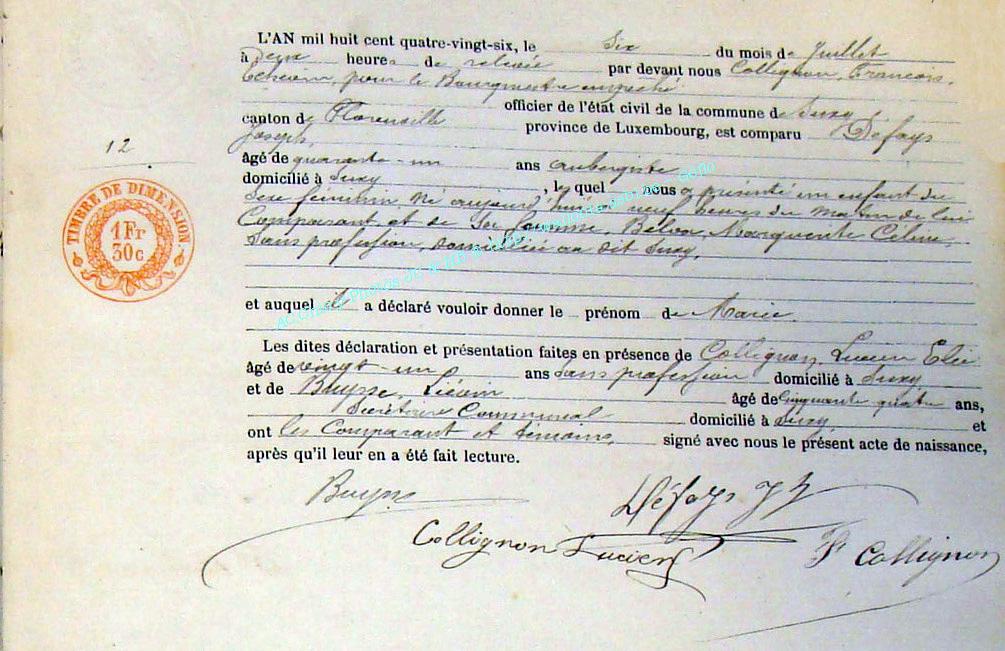 L'AN mil huit cent quatre-vingt-six, le Six du mois de Juillet
à deux heures de relevée par devant nous Collignon, François,
Echevin, pour le Bourgmestre empêché
officier de l'état civil de la commune de Suxy
canton de Florenville province de Luxembourg, est comparu Défays
Joseph,
âgé de quarante-un ans aubergiste
domicilié à Suxy, lequel nous a présenté un enfant du
Sexe féminin né aujourd'hui à neuf heures du matin de lui
Comparant et de Sa femme, Belva, Marguerite Céline,
Sans profession, domiciliée au dit Suxy,
et auquel il a déclaré vouloir donner le prénom de Marie.
Les dites déclaration et présentation faites en présence de Collignon, Lucien
âgé de vingt-un ans Sans profession domicilié à Suxy
et de Buysse, Liévin âgé de Cinquante quatre ans,
Secrétaire Communal domicilié à Suxy, et
ont les Comparant et témoins, signé avec nous le présent acte de naissance,
après qu'il leur en a été fait lecture.
12
TIMBRE DE DIMENSION
1 Fr
30 c
Buysse
Défays Jh
Collignon Lucien
Fs Collignon